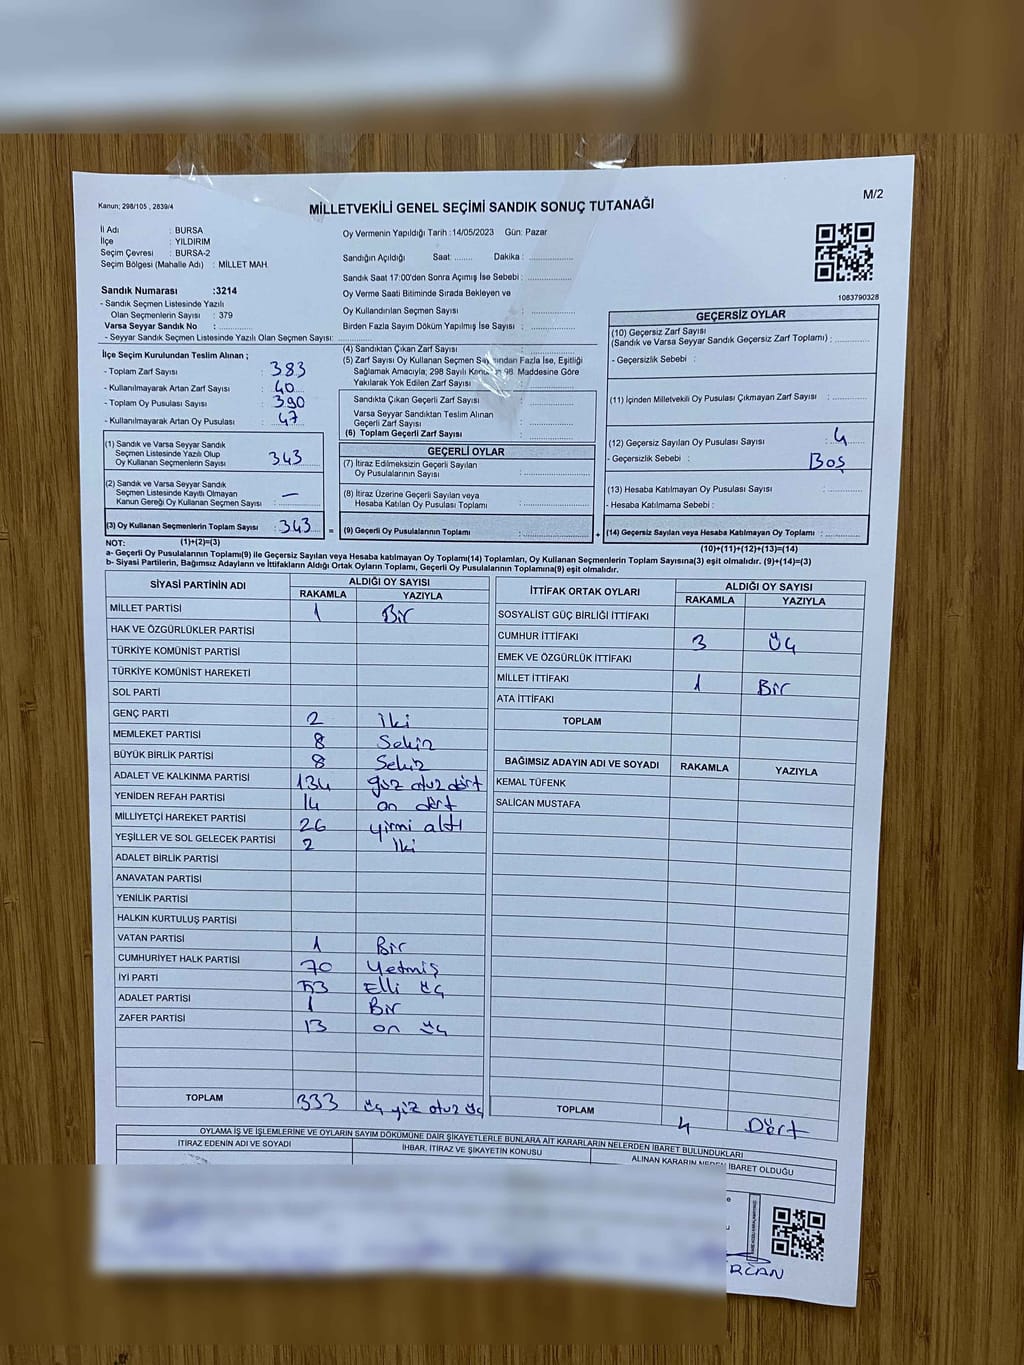 M/2
Kanun; 298/105 , 2839/4
MİLLETVEKİLİ GENEL SEÇİMİ SANDIK SONUÇ TUTANAĞI
İl Adı : BURSA
İlçe : YILDIRIM
Seçim Çevresi : BURSA-2
Seçim Bölgesi (Mahalle Adı) : MİLLET MAH.
Sandık Numarası :3214
- Sandık Seçmen Listesinde Yazılı
Olan Seçmenlerin Sayısı : 379
Varsa Seyyar Sandık No : ..............
- Seyyar Sandık Seçmen Listesinde Yazılı Olan Seçmen Sayısı: ..............
Oy Vermenin Yapıldığı Tarih :14/05/2023 Gün: Pazar
Sandığın Açıldığı Saat: ....... Dakika : ..............
Sandık Saat 17:00'den Sonra Açımış İse Sebebi : ..............
Oy Verme Saati Bitiminde Sırada Bekleyen ve
Oy Kullandırılan Seçmen Sayısı : ..............
Birden Fazla Sayım Döküm Yapılmış İse Sayısı : ..............
1083790328
İlçe Seçim Kurulundan Teslim Alınan ;
- Toplam Zarf Sayısı : 383
- Kullanılmayarak Artan Zarf Sayısı : 40
- Toplam Oy Pusulası Sayısı : 390
- Kullanılmayarak Artan Oy Pusulası : 47
(1) Sandık ve Varsa Seyyar Sandık
Seçmen Listesinde Yazılı Olup
Oy Kullanan Seçmenlerin Sayısı : 343
(2) Sandık ve Varsa Seyyar Sandık
Seçmen Listesinde Kayıtlı Olmayan
Kanun Gereği Oy Kullanan Seçmen Sayısı : —
(3) Oy Kullanan Seçmenlerin Toplam Sayısı : 343
(1)+(2)=(3)
(4) Sandıktan Çıkan Zarf Sayısı : ..............
(5) Zarf Sayısı Oy Kullanan Seçmen Sayısından Fazla İse, Eşitliği
Sağlamak Amacıyla, 298 Sayılı 98. Maddesine Göre
Yakılarak Yok Edilen Zarf Sayısı : ..............
Sandıkta Çıkan Geçerli Zarf Sayısı : ..............
Varsa Seyyar Sandıktan Teslim Alınan
Geçerli Zarf Sayısı : ..............
(6) Toplam Geçerli Zarf Sayısı : ..............
GEÇERLİ OYLAR
(7) İtiraz Edilmeksizin Geçerli Sayılan
Oy Pusulalarının Sayısı : ..............
(8) İtiraz Üzerine Geçerli Sayılan veya
Hesaba Katılan Oy Pusulalarının Toplamı : ..............
= (9) Geçerli Oy Pusulalarının Toplamı : ..............
GEÇERSİZ OYLAR
(10) Geçersiz Zarf Sayısı
(Sandık ve Varsa Seyyar Sandık Geçersiz Zarf Toplamı) : ..............
- Geçersizlik Sebebi :
(11) İçinden Milletvekili Oy Pusulası Çıkmayan Zarf Sayısı : ..............
(12) Geçersiz Sayılan Oy Pusulası Sayısı : 4
- Geçersizlik Sebebi : Boş
(13) Hesaba Katılmayan Oy Pusulası Sayısı : ..............
- Hesaba Katılmama Sebebi :
+ (14) Geçersiz Sayılan veya Hesaba Katılmayan Oy Toplamı : ..............
(10)+(11)+(12)+(13)=(14)
NOT:
a- Geçerli Oy Pusulalarının Toplamı(9) ile Geçersiz Sayılan veya Hesaba katılmayan Oy Toplamı(14) Toplamları, Oy Kullanan Seçmenlerin Toplam Sayısına(3) eşit olmalıdır. (9)+(14)=(3)
b- Siyasi Partilerin, Bağımsız Adayların ve İttifakların Aldığı Ortak Oyların Toplamı, Geçerli Oy Pusulalarının Toplamına(9) eşit olmalıdır.
SİYASİ PARTİNİN ADI ALDIĞI OY SAYISI
RAKAMLA YAZIYLA
MİLLET PARTİSİ 1 Bir
HAK VE ÖZGÜRLÜKLER PARTİSİ
TÜRKİYE KOMÜNİST PARTİSİ
TÜRKİYE KOMÜNİST HAREKETİ
SOL PARTİ
GENÇ PARTİ 2 İki
MEMLEKET PARTİSİ 8 Sekiz
BÜYÜK BİRLİK PARTİSİ 8 Sekiz
ADALET VE KALKINMA PARTİSİ 134 yüz otuz dört
YENİDEN REFAH PARTİSİ 14 on dört
MİLLİYETÇİ HAREKET PARTİSİ 26 yirmi altı
YEŞİLLER VE SOL GELECEK PARTİSİ 2 İki
ADALET BİRLİK PARTİSİ
ANAVATAN PARTİSİ
YENİLİK PARTİSİ
HALKIN KURTULUŞ PARTİSİ
VATAN PARTİSİ 1 Bir
CUMHURİYET HALK PARTİSİ 70 Yetmiş
İYİ PARTİ 53 Elli üç
ADALET PARTİSİ 1 Bir
ZAFER PARTİSİ 13 on üç
TOPLAM 333 üç yüz otuz üç
İTTİFAK ORTAK OYLARI ALDIĞI OY SAYISI
RAKAMLA YAZIYLA
SOSYALİST GÜÇ BİRLİĞİ İTTİFAKI
CUMHUR İTTİFAKI 3 Üç
EMEK VE ÖZGÜRLÜK İTTİFAKI
MİLLET İTTİFAKI 1 Bir
ATA İTTİFAKI
TOPLAM
BAĞIMSIZ ADAYIN ADI VE SOYADI RAKAMLA YAZIYLA
KEMAL TÜFENK
SALİCAN MUSTAFA
TOPLAM 4 Dört
OYLAMA İŞ VE İŞLEMLERİNE VE OYLARIN SAYIM DÖKÜMÜNE DAİR ŞİKAYETLERLE BUNLARA AİT KARARLARIN NELERDEN İBARET BULUNDUKLARI
İTİRAZ EDENİN ADI VE SOYADI İHBAR, İTİRAZ VE ŞİKAYETİN KONUSU ALINAN KARARIN NEDEN İBARET OLDUĞU
RCAN